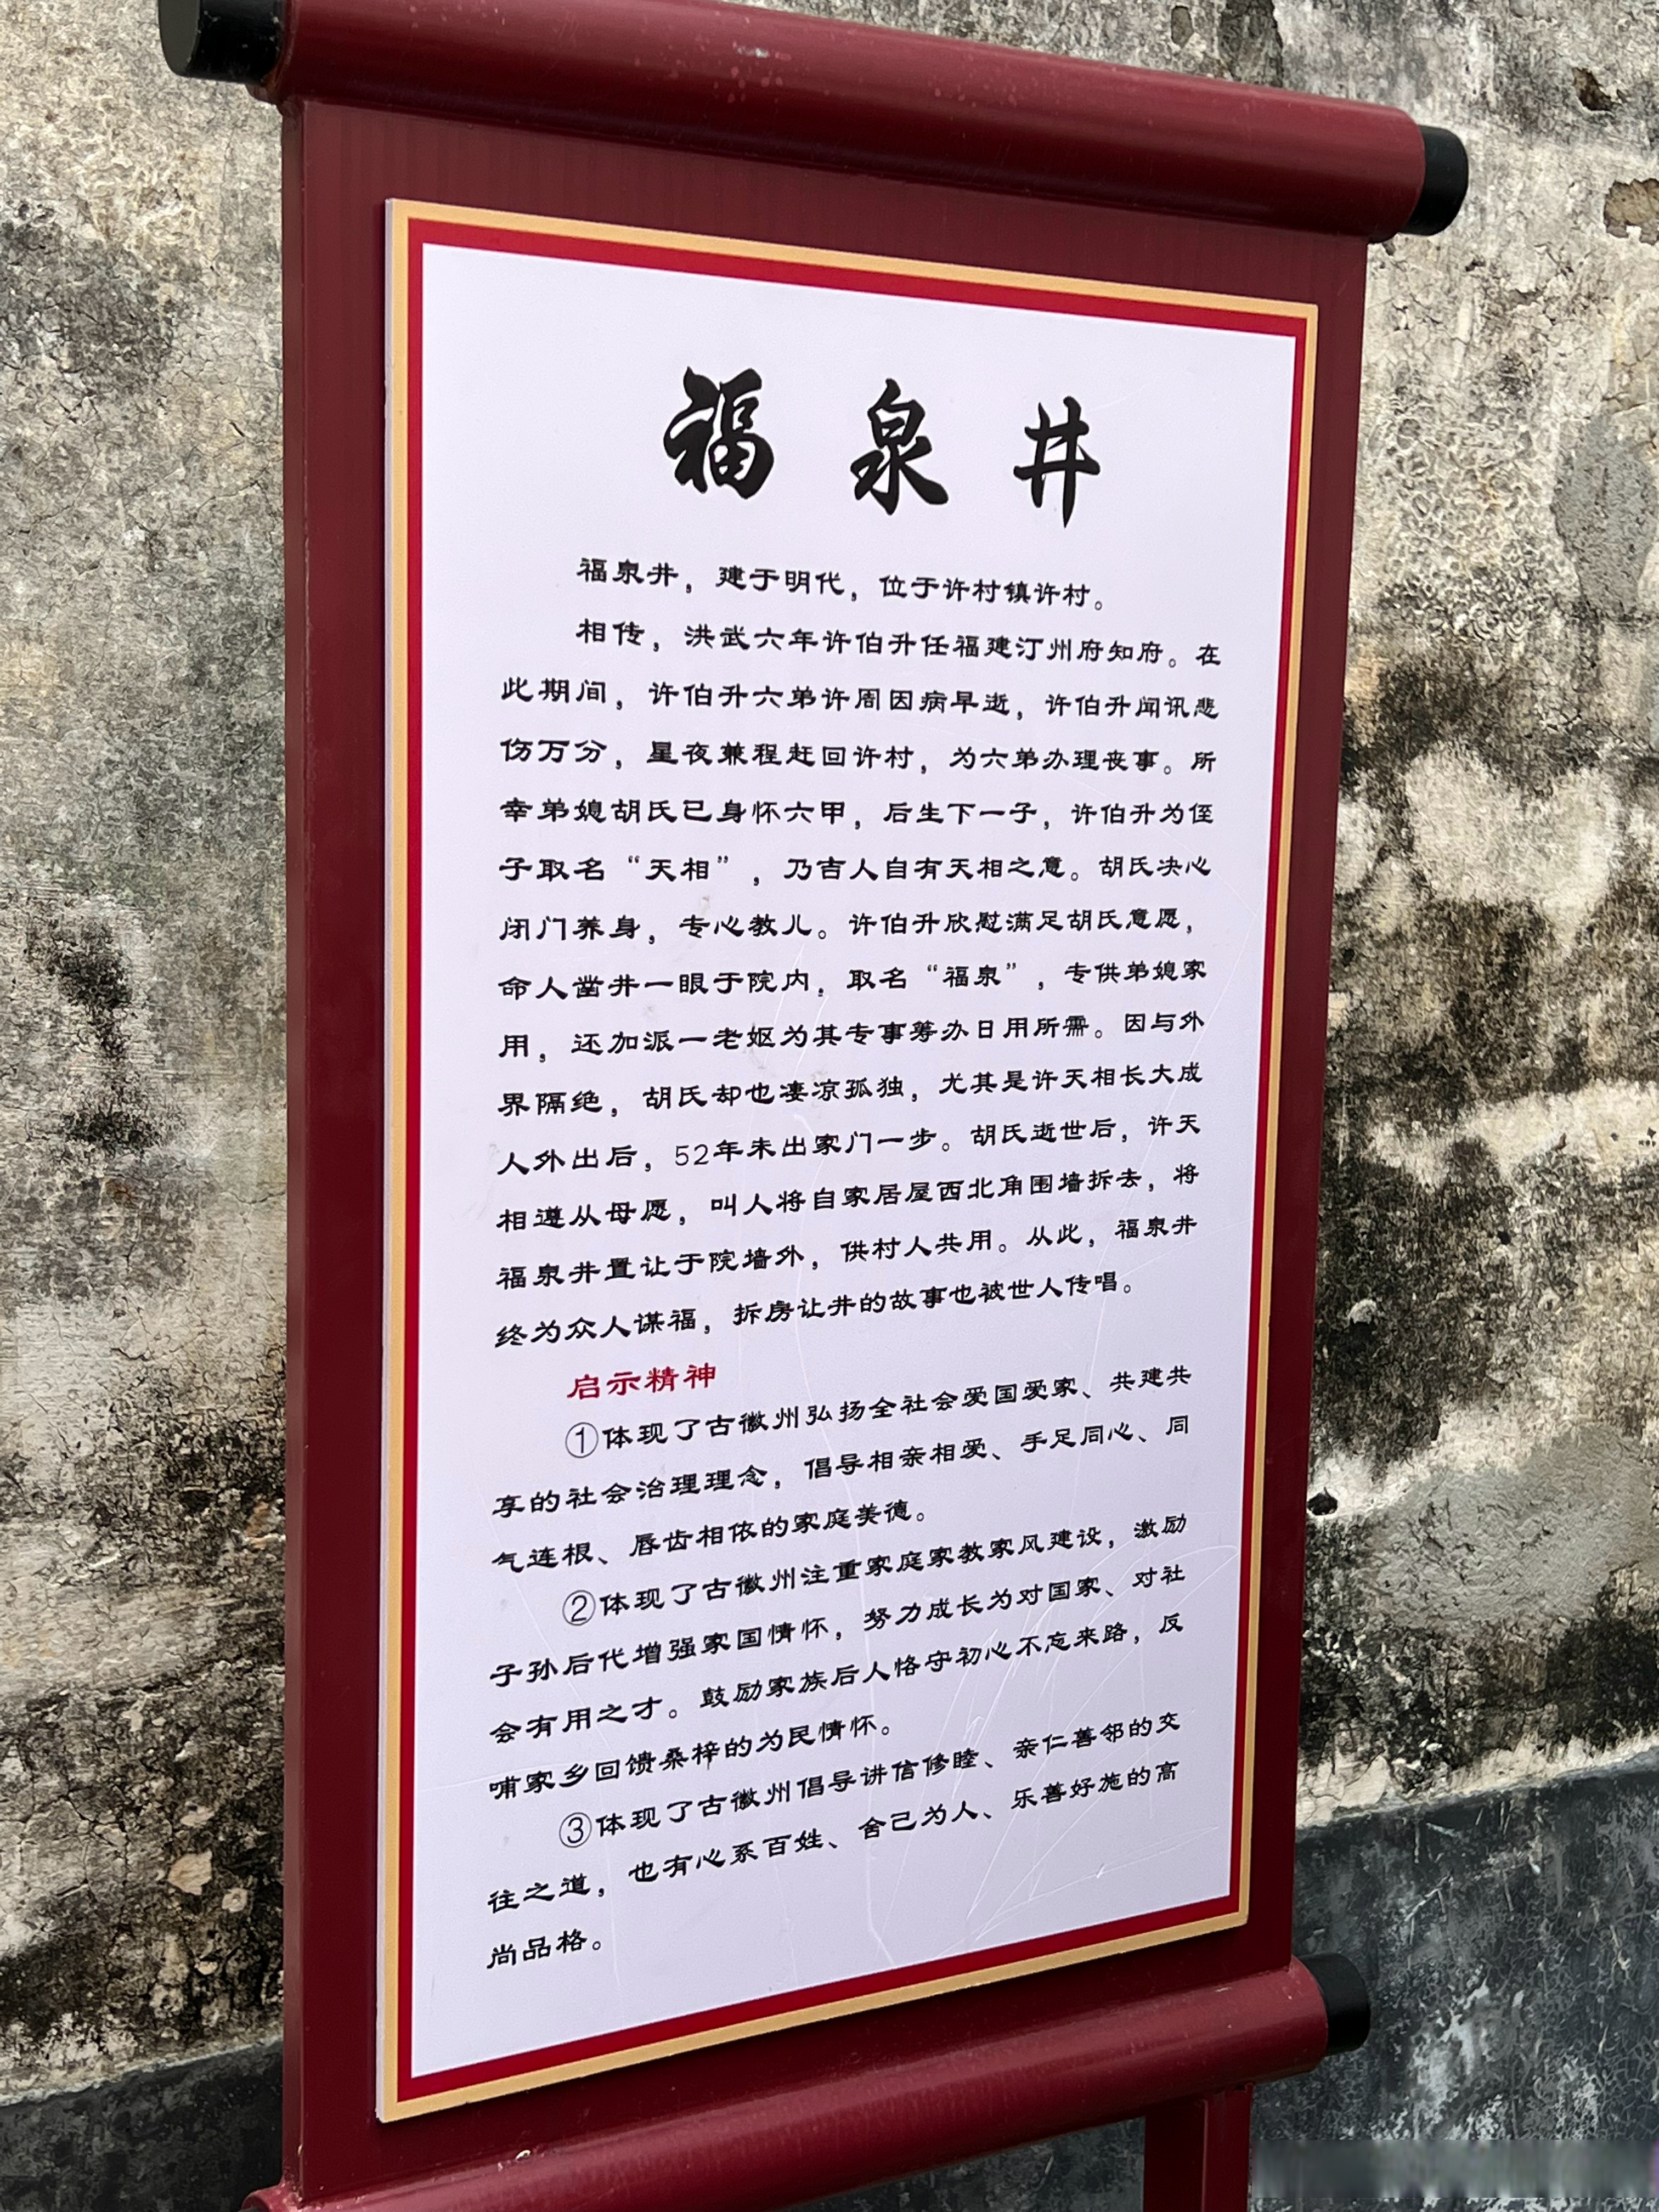 福泉井
福泉井，建于明代，位于许村镇许村。
相传，洪武六年许伯升任福建汀州府知府。在
此期间，许伯升六弟许周因病早逝，许伯升闻讯悲
伤万分，星夜兼程赶回许村，为六弟办理丧事。所
幸弟媳胡氏已身怀六甲，后生下一子，许伯升为侄
子取名“天相”，乃吉人自有天相之意。胡氏决心
闭门养身，专心教儿。许伯升欣慰满足胡氏意愿，
命人凿井一眼于院内，取名“福泉”，专供弟媳家
用，还加派一老妪为其专事筹办日用所需。因与外
界隔绝，胡氏却也凄凉孤独，尤其是许天相长大成
人外出后，52年未出家门一步。胡氏逝世后，许天
相遵从母愿，叫人将自家居屋西北角围墙拆去，将
福泉井置让于院墙外，供村人共用。从此，福泉井
终为众人谋福，拆房让井的故事也被世人传唱。
启示精神
①体现了古徽州弘扬全社会爱国爱家、共建共
享的社会治理理念，倡导相亲相爱、手足同心、同
气连根、唇齿相依的家庭美德。
②体现了古徽州注重家庭家教家风建设，激励
子孙后代增强家国情怀，努力成长为对国家、对社
会有用之才。鼓励家族后人恪守初心不忘来路，反
哺家乡回馈桑梓的为民情怀。
③体现了古徽州倡导讲信修睦、亲仁善邻的交
往之道，也有心系百姓、舍己为人、乐善好施的高
尚品格。